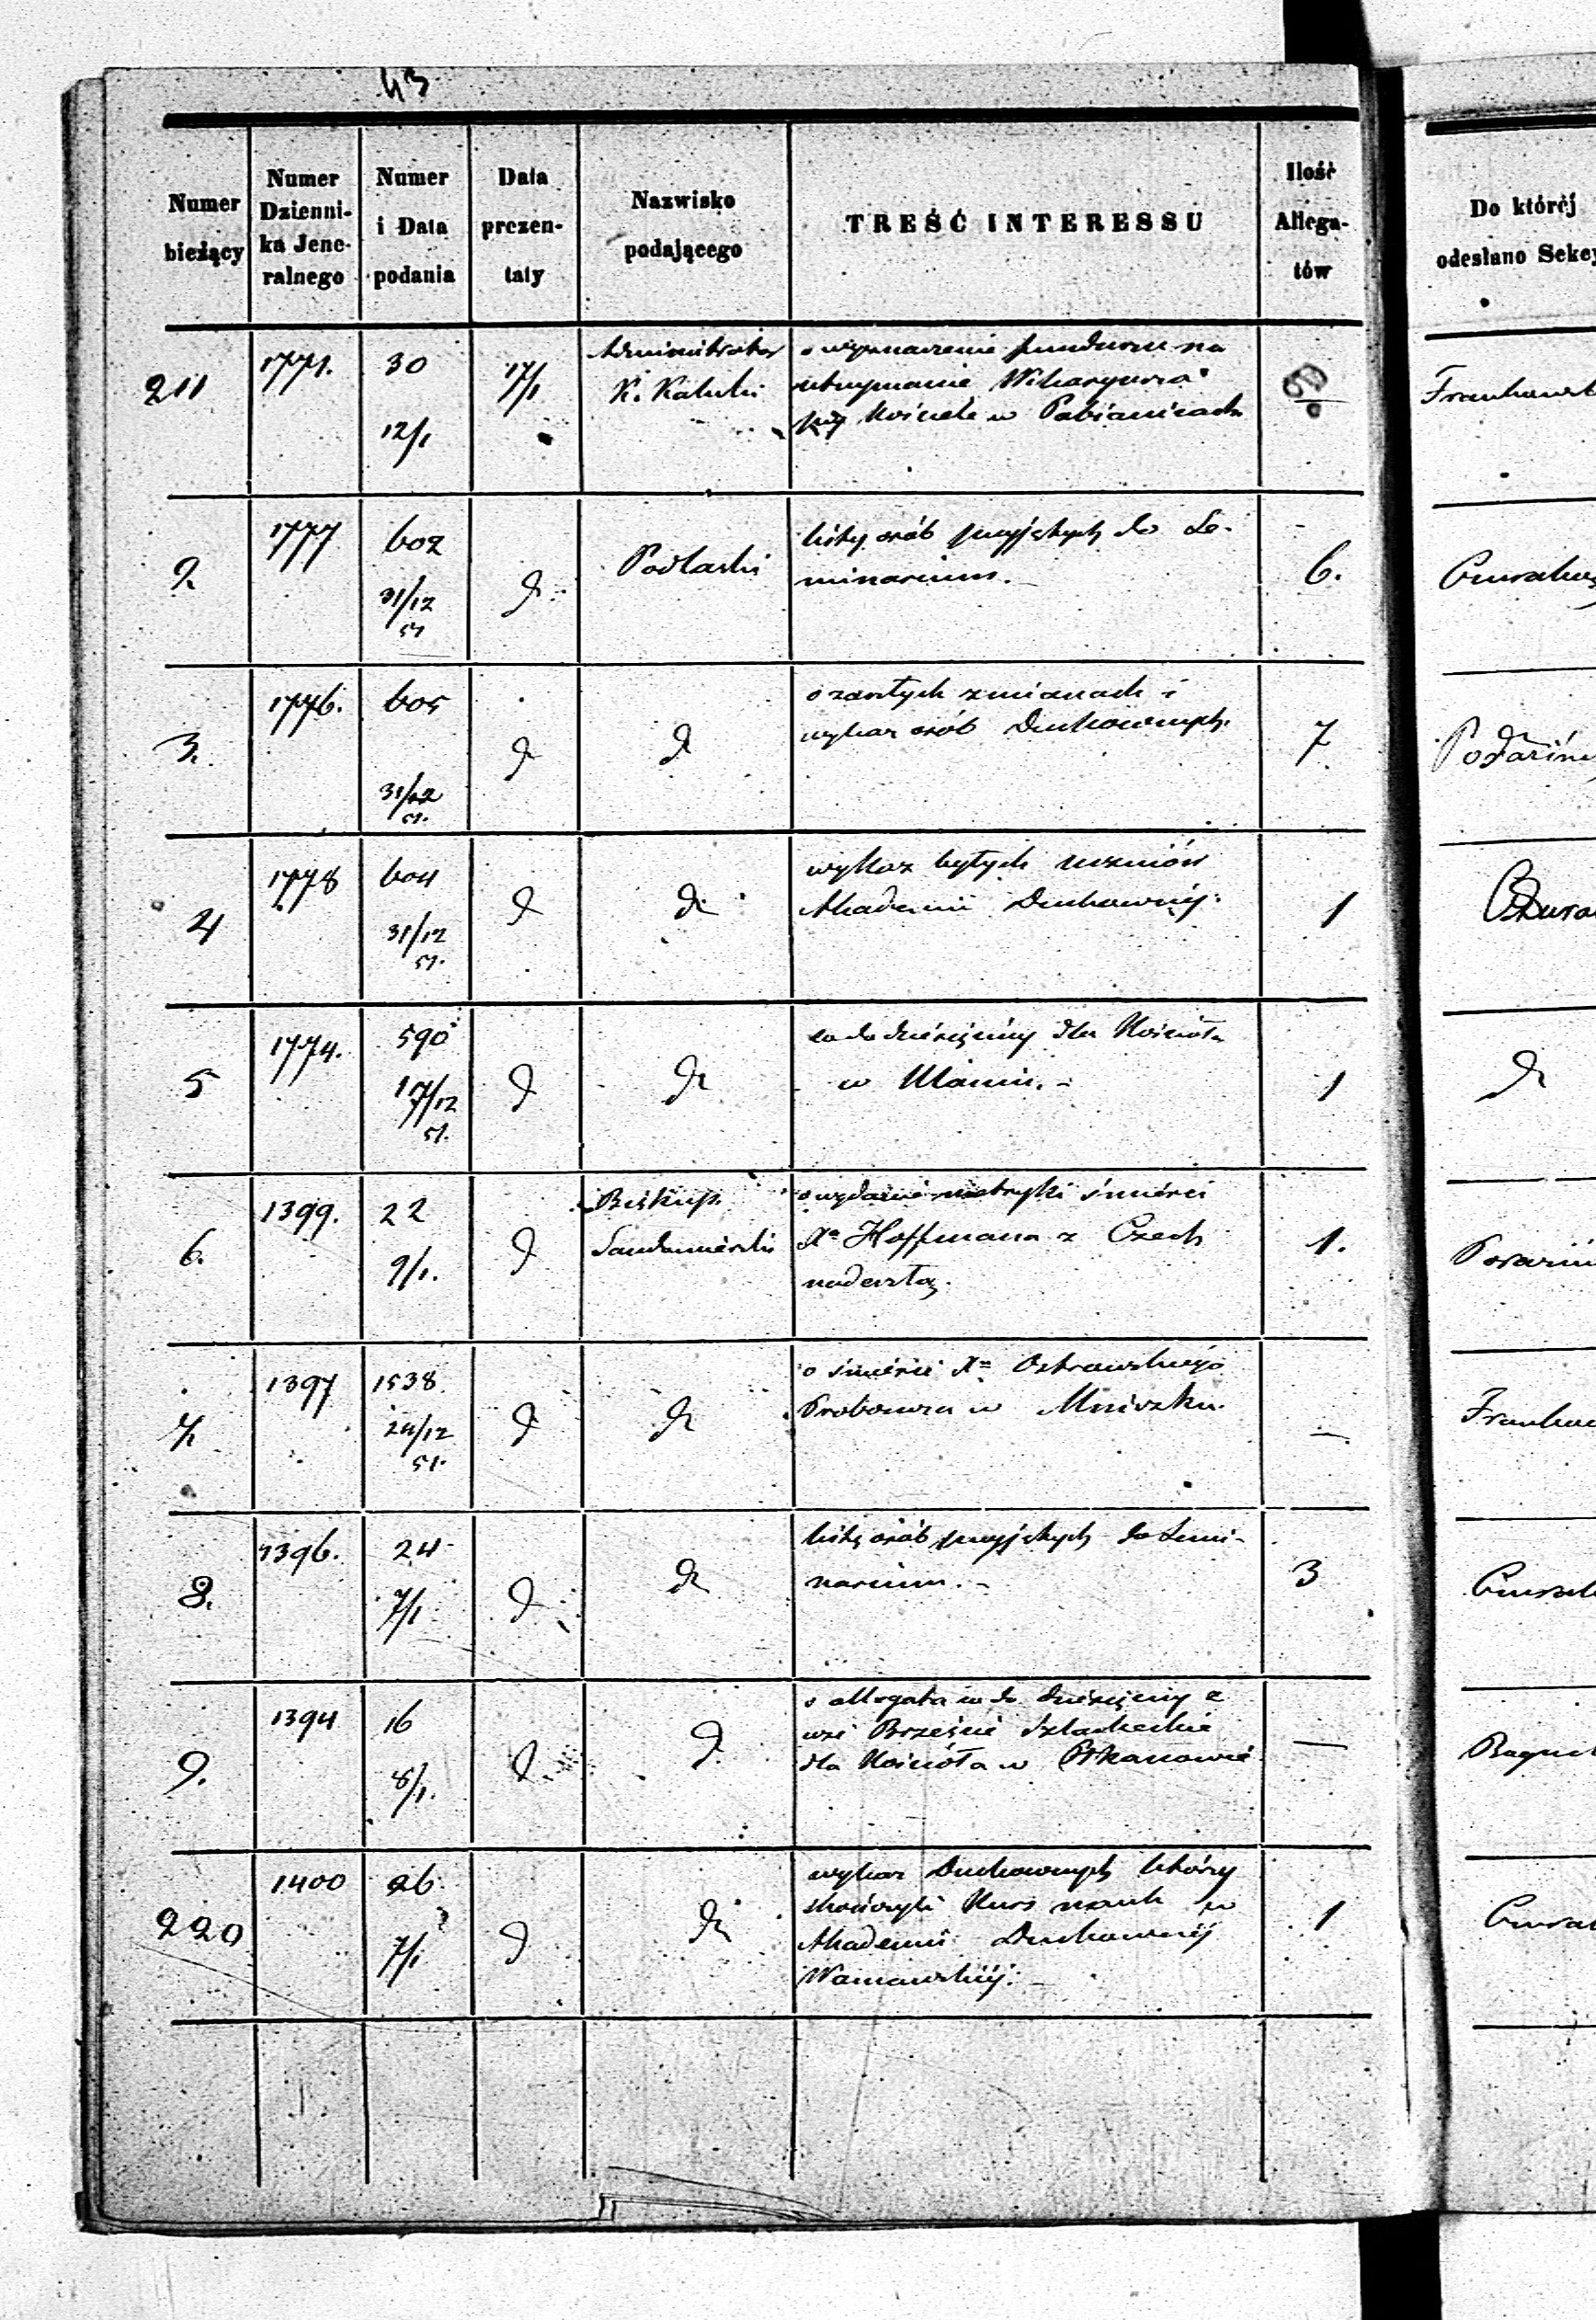 43
Numer bieżący
Numer Dzienni- ka Jene- ralnego
Numer i Data podania
Data prezen- taty
Nazwisko podającego
TREŚĆ INTERESSU
Ilość Allega- tów
Do któréj odesłano Sekcy
211
1771.
30
12/1
17/1
Administrator
K. Kaliski
o wyznaczenie funduszu na
utrzymanie Wikaryusza
przy Kościele w Pabianicach
2
1777
602
31/12
51
d
Podlaski
listy osób przyjętych do Se-
minarium.
6.
3.
1776.
605
31/12
51.
d
d
o zaszłych zmianach i
wykaz osób Duchownych.
7
4
1778
604
31/12
51.
d
d
wykaz byłych uczniów
Akademii Duchownéj.
1
5
1774.
590
17/12
51.
d
d
co do dziesięciny dla Kościoła
w
1
d
6.
1399.
22
9/1.
d
Biskup
Sandomierski
o wydanie metryki śmierci
Xa Hoffmana z Czech
nadeszłą.
1.
7.
1397
1538
24/12
51.
d
d
o śmierci Xa Ostrowskiego
Proboszcza w Mniszku.
—
8.
1396.
24
7/1
d
d
listę osób przyjętych do Semi-
narium.
3
9.
1394
16
8/1.
d
d
o allegata co do dziesięciny z
wsi Brzeście Szlacheckie
dla Kościoła w
—
220
1400
26
7/1
d
d
wykaz Duchownych którzy
skończyli Kurs nauk w
Akademii Duchownéj
Warszawskiéj.
1